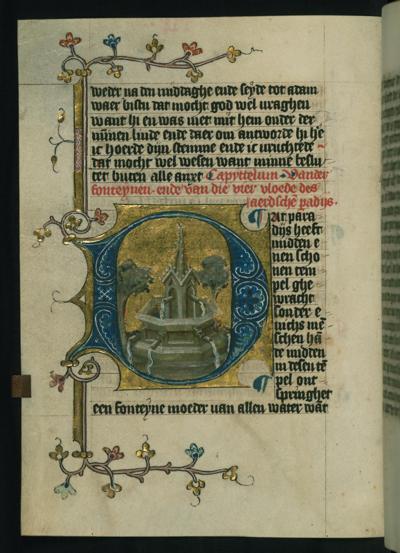 weder na den middaghe ende seyde tot adam
waer bistu dat mocht god wel vraghen
want hi en was niet mit hem onder der
minnen linde ende daer om antworde hi he
ic hoerde dijn stemme ende ic vruchtede
dat mocht wel wesen want minne beslu
tet buten alle anxt Capyttelum. Vander
fonteynen. ende van die vier vloede des
aerdsche padijs.
Dat para
dijs heeft
midden e
nen scho
nen tem
pel ghe
wracht
sonder e
nichs mē
schen hā
de midden
in desen tē
pel ont
springhet
een fonteyne moeder van allen water want